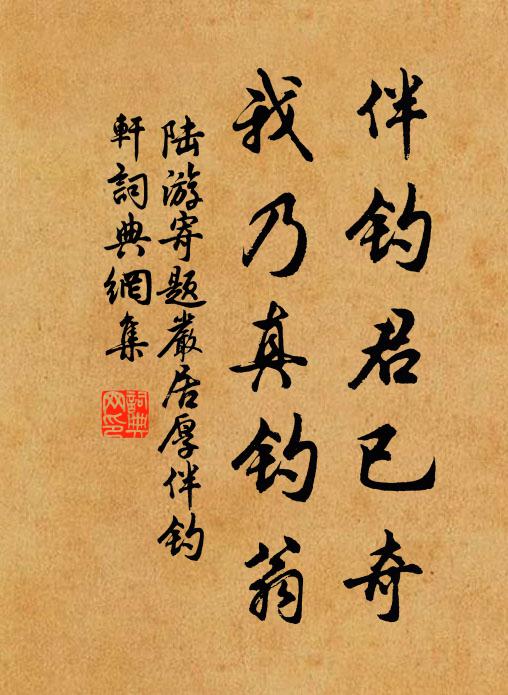 伴钓君已奇
我乃真钓翁
陆游寄题嚴居厚伴钓
軒詞典網集
詞典网印